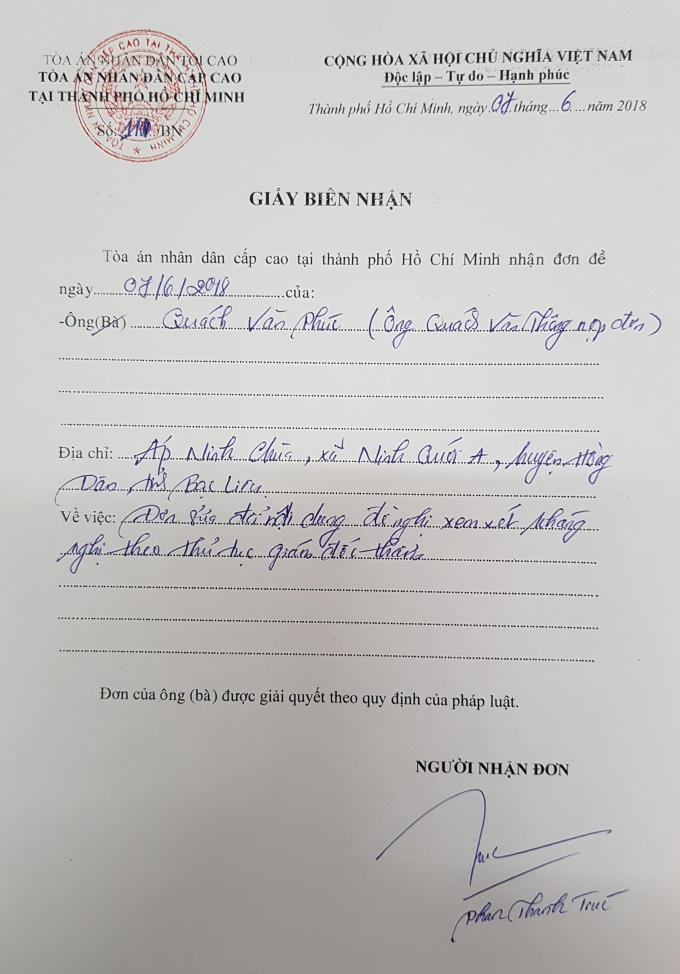 TÒA ÁN NHÂN DÂN TỐI CAO
TÒA ÁN NHÂN DÂN CẤP CAO
TẠI THÀNH PHỐ HỒ CHÍ MINH
Số: /BN
CỘNG HÒA XÃ HỘI CHỦ NGHĨA VIỆT NAM
Độc lập – Tự do – Hạnh phúc
Thành phố Hồ Chí Minh, ngày 07 tháng 6 năm 2018
GIẤY BIÊN NHẬN
Tòa án nhân dân cấp cao tại thành phố Hồ Chí Minh nhận đơn đề
ngày 07/6/2018 của:
-Ông(Bà) Quách Văn Phúc (Ông Quách Văn Thông nộp đơn)
Địa chỉ: Ấp Ninh Chùa, xã Ninh Quới A, huyện Hồng
Dân, tỉnh Bạc Liêu
Về việc: Đơn sửa đổi nội dung đề nghị xem xét kháng
nghị theo thủ tục giám đốc thẩm
Đơn của ông (bà) được giải quyết theo quy định của pháp luật.
NGƯỜI NHẬN ĐƠN
Phan Thanh Trúc